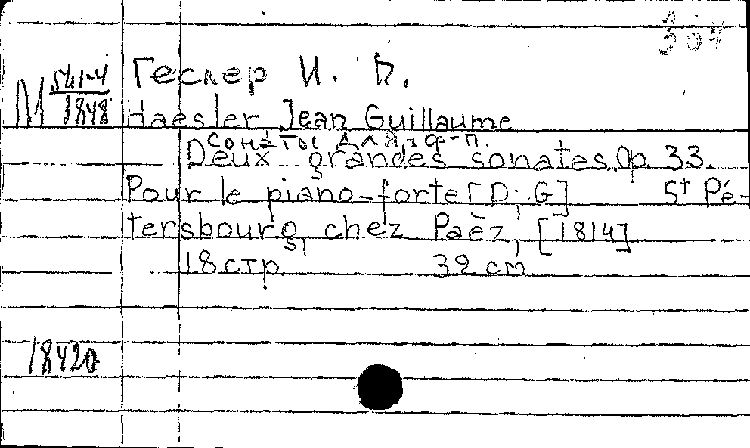 Геслер И. В.
М 541-4
1848
Haesler Jean Guillaume
сонаты для ф-п.
Deux grandes sonates. Op. 33.
Pour le piano-forte [D; G] St Pé-
tersbourg, chez Paëz, [1814]
18 стр. 32 cm
18420